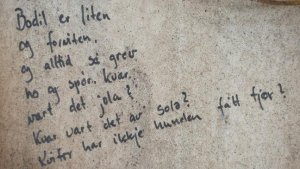 Bodil er liten
og forviten.
og alltid så grev
ho og spør. Kvar
vart det jola?
Kvar vart det av sola?
Kvifor har ikkje hunden fått fjør?